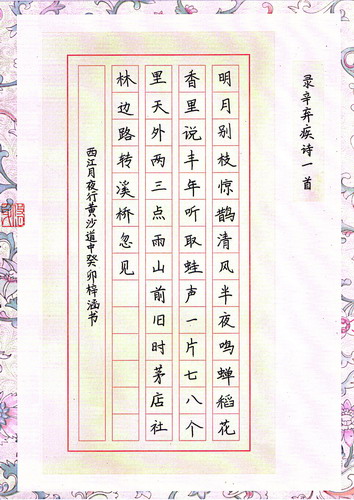 录辛弃疾诗一首
明月别枝惊鹊清风半夜鸣蝉稻花
香里说丰年听取蛙声一片七八个
里天外两三点雨山前旧时茅店社
林边路转溪桥忽见
西江月夜行黄沙道中癸卯梓涵书